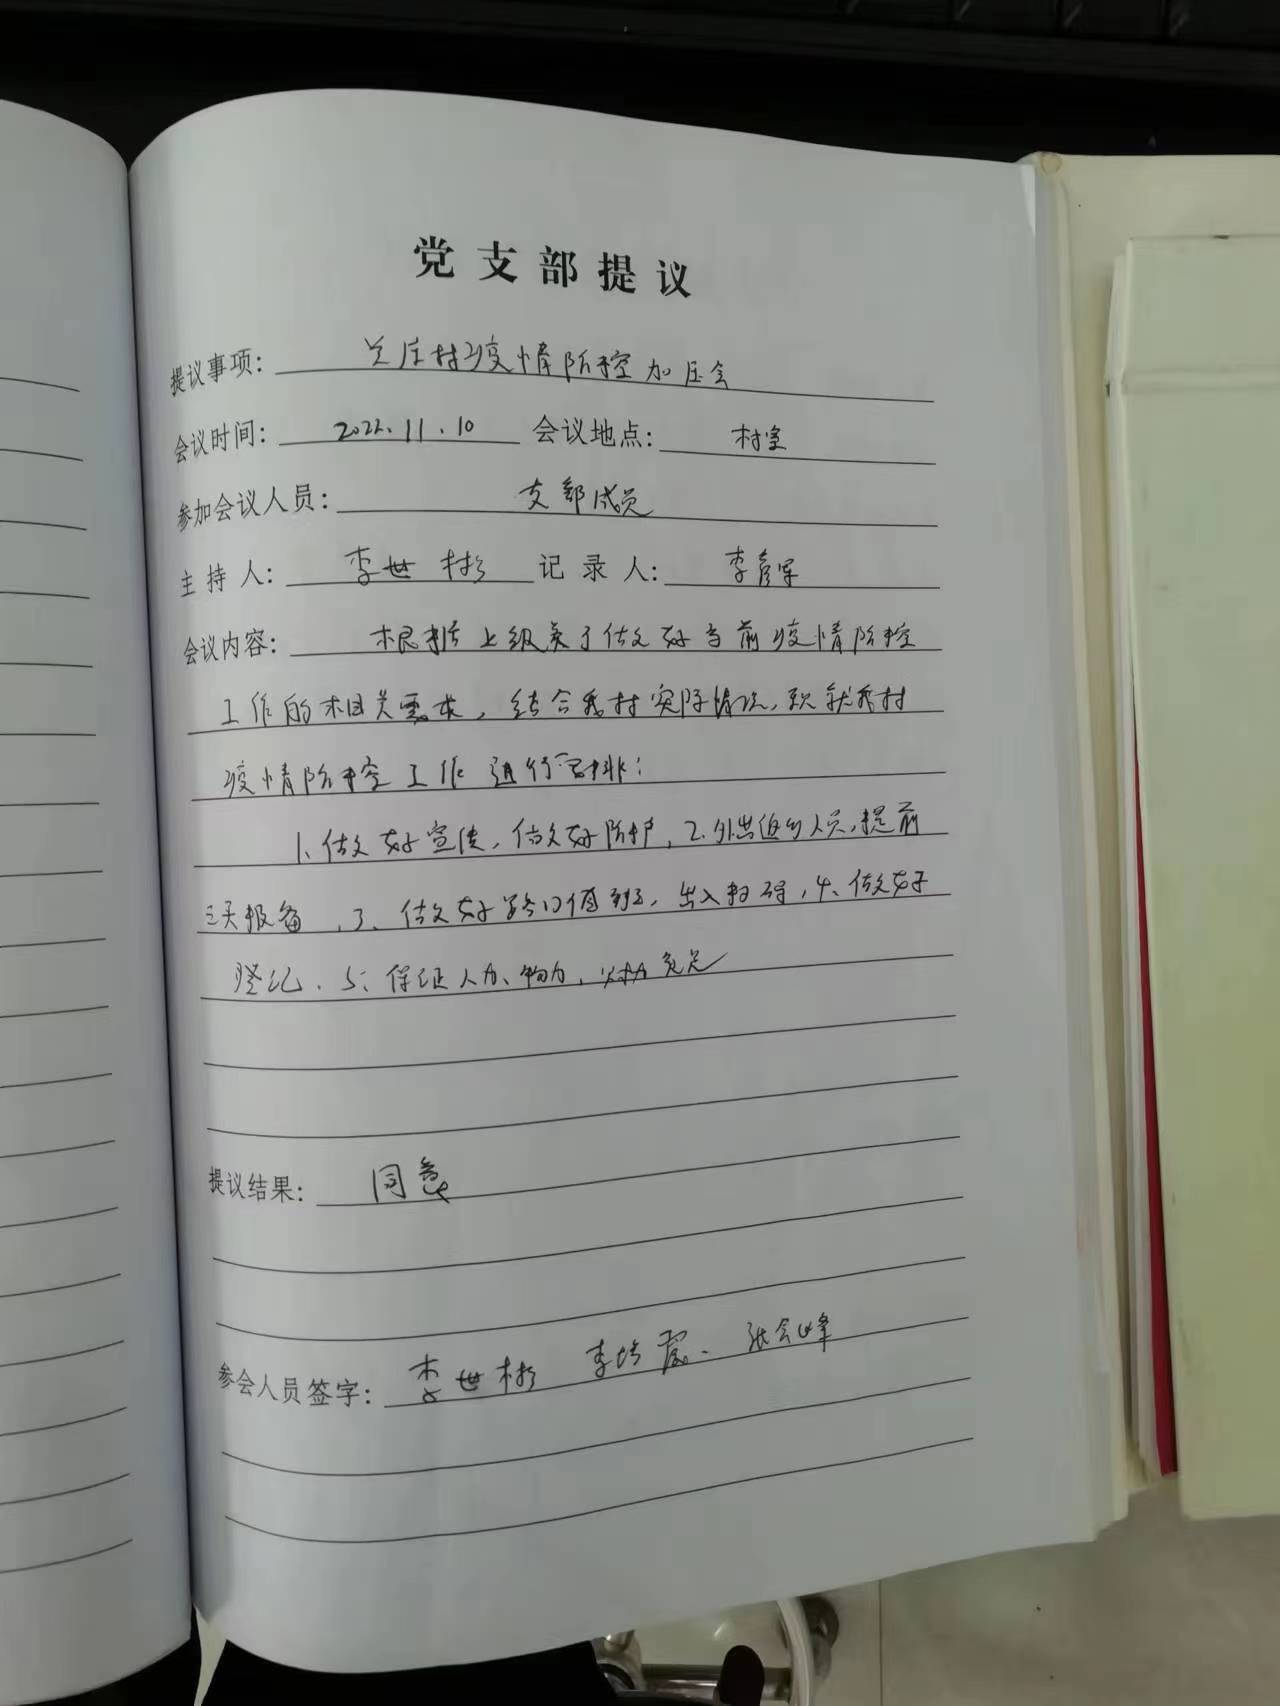 党支部提议
提议事项：庄村疫情防控加压会
会议时间：2022.11.10 会议地点：村室
参加会议人员：支部成员
主持人：李世彬 记录人：李彦军
会议内容：根据上级关于做好当前疫情防控
工作的相关要求，结合我村实际情况，现就我村
疫情防控工作进行安排：
1、做好宣传，做好防护，2、外出返乡人员，提前
三天报备，3、做好路口值班，出入扫码，4、做好
登记．5、保证人力、物力，财力充足
提议结果：同意
参会人员签字：李世彬 李培 张会峰